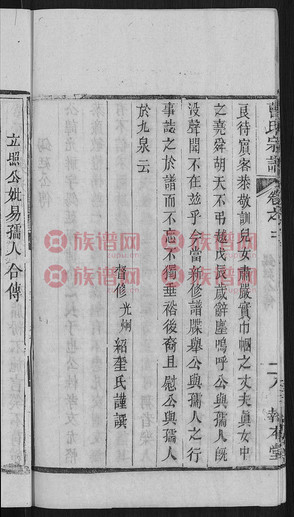 曹氏宗譜
卷之二
二八
敦本堂
良待賓客恭敬訓兒女肅嚴實巾幗之丈夫真女中
之堯舜胡天不弔越戊辰歲辭塵嗚呼公與孺人既
没聲聞不在茲乎今當新修譜牒舉公與孺人之行
事誌之於譜而不忘不獨垂裕後裔且慰公與孺人
於九泉云
督修 光炯 紹奎氏謹撰
立照公妣易孺人合傳
族谱网